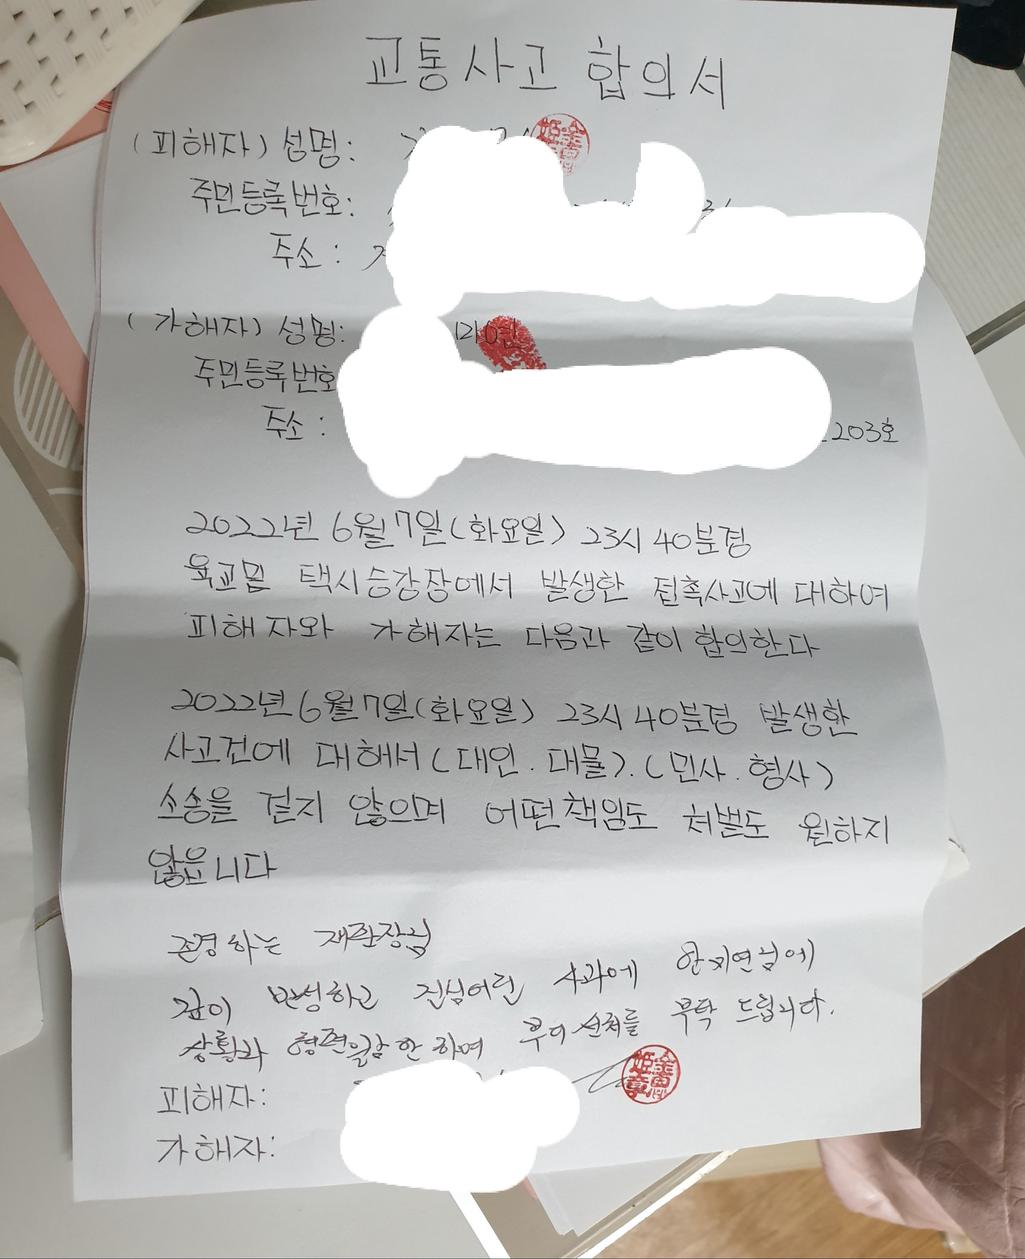 교통사고 합의서
(피해자) 성명:
주민등록번호:
주소 :
(가해자) 성명:
주민등록번호
주소 : 203호
2022년 6월 7일(화요일) 23시 40분경
육교밑 택시승강장에서 발생한 접촉사고에 대하여
피해자와 가해자는 다음과 같이 합의한다
2022년 6월 7일(화요일) 23시 40분경 발생한
사고건에 대해서 (대인. 대물). (민사. 형사)
소송을 걷지 않으며 어떤책임도 처벌도 원하지
않습니다
존경하는 재판장님
깊이 반성하고 진심어린 사과에 한지연님에
상황과 형편을감안하여 부디 선처를 부탁 드립니다.
피해자:
가해자: